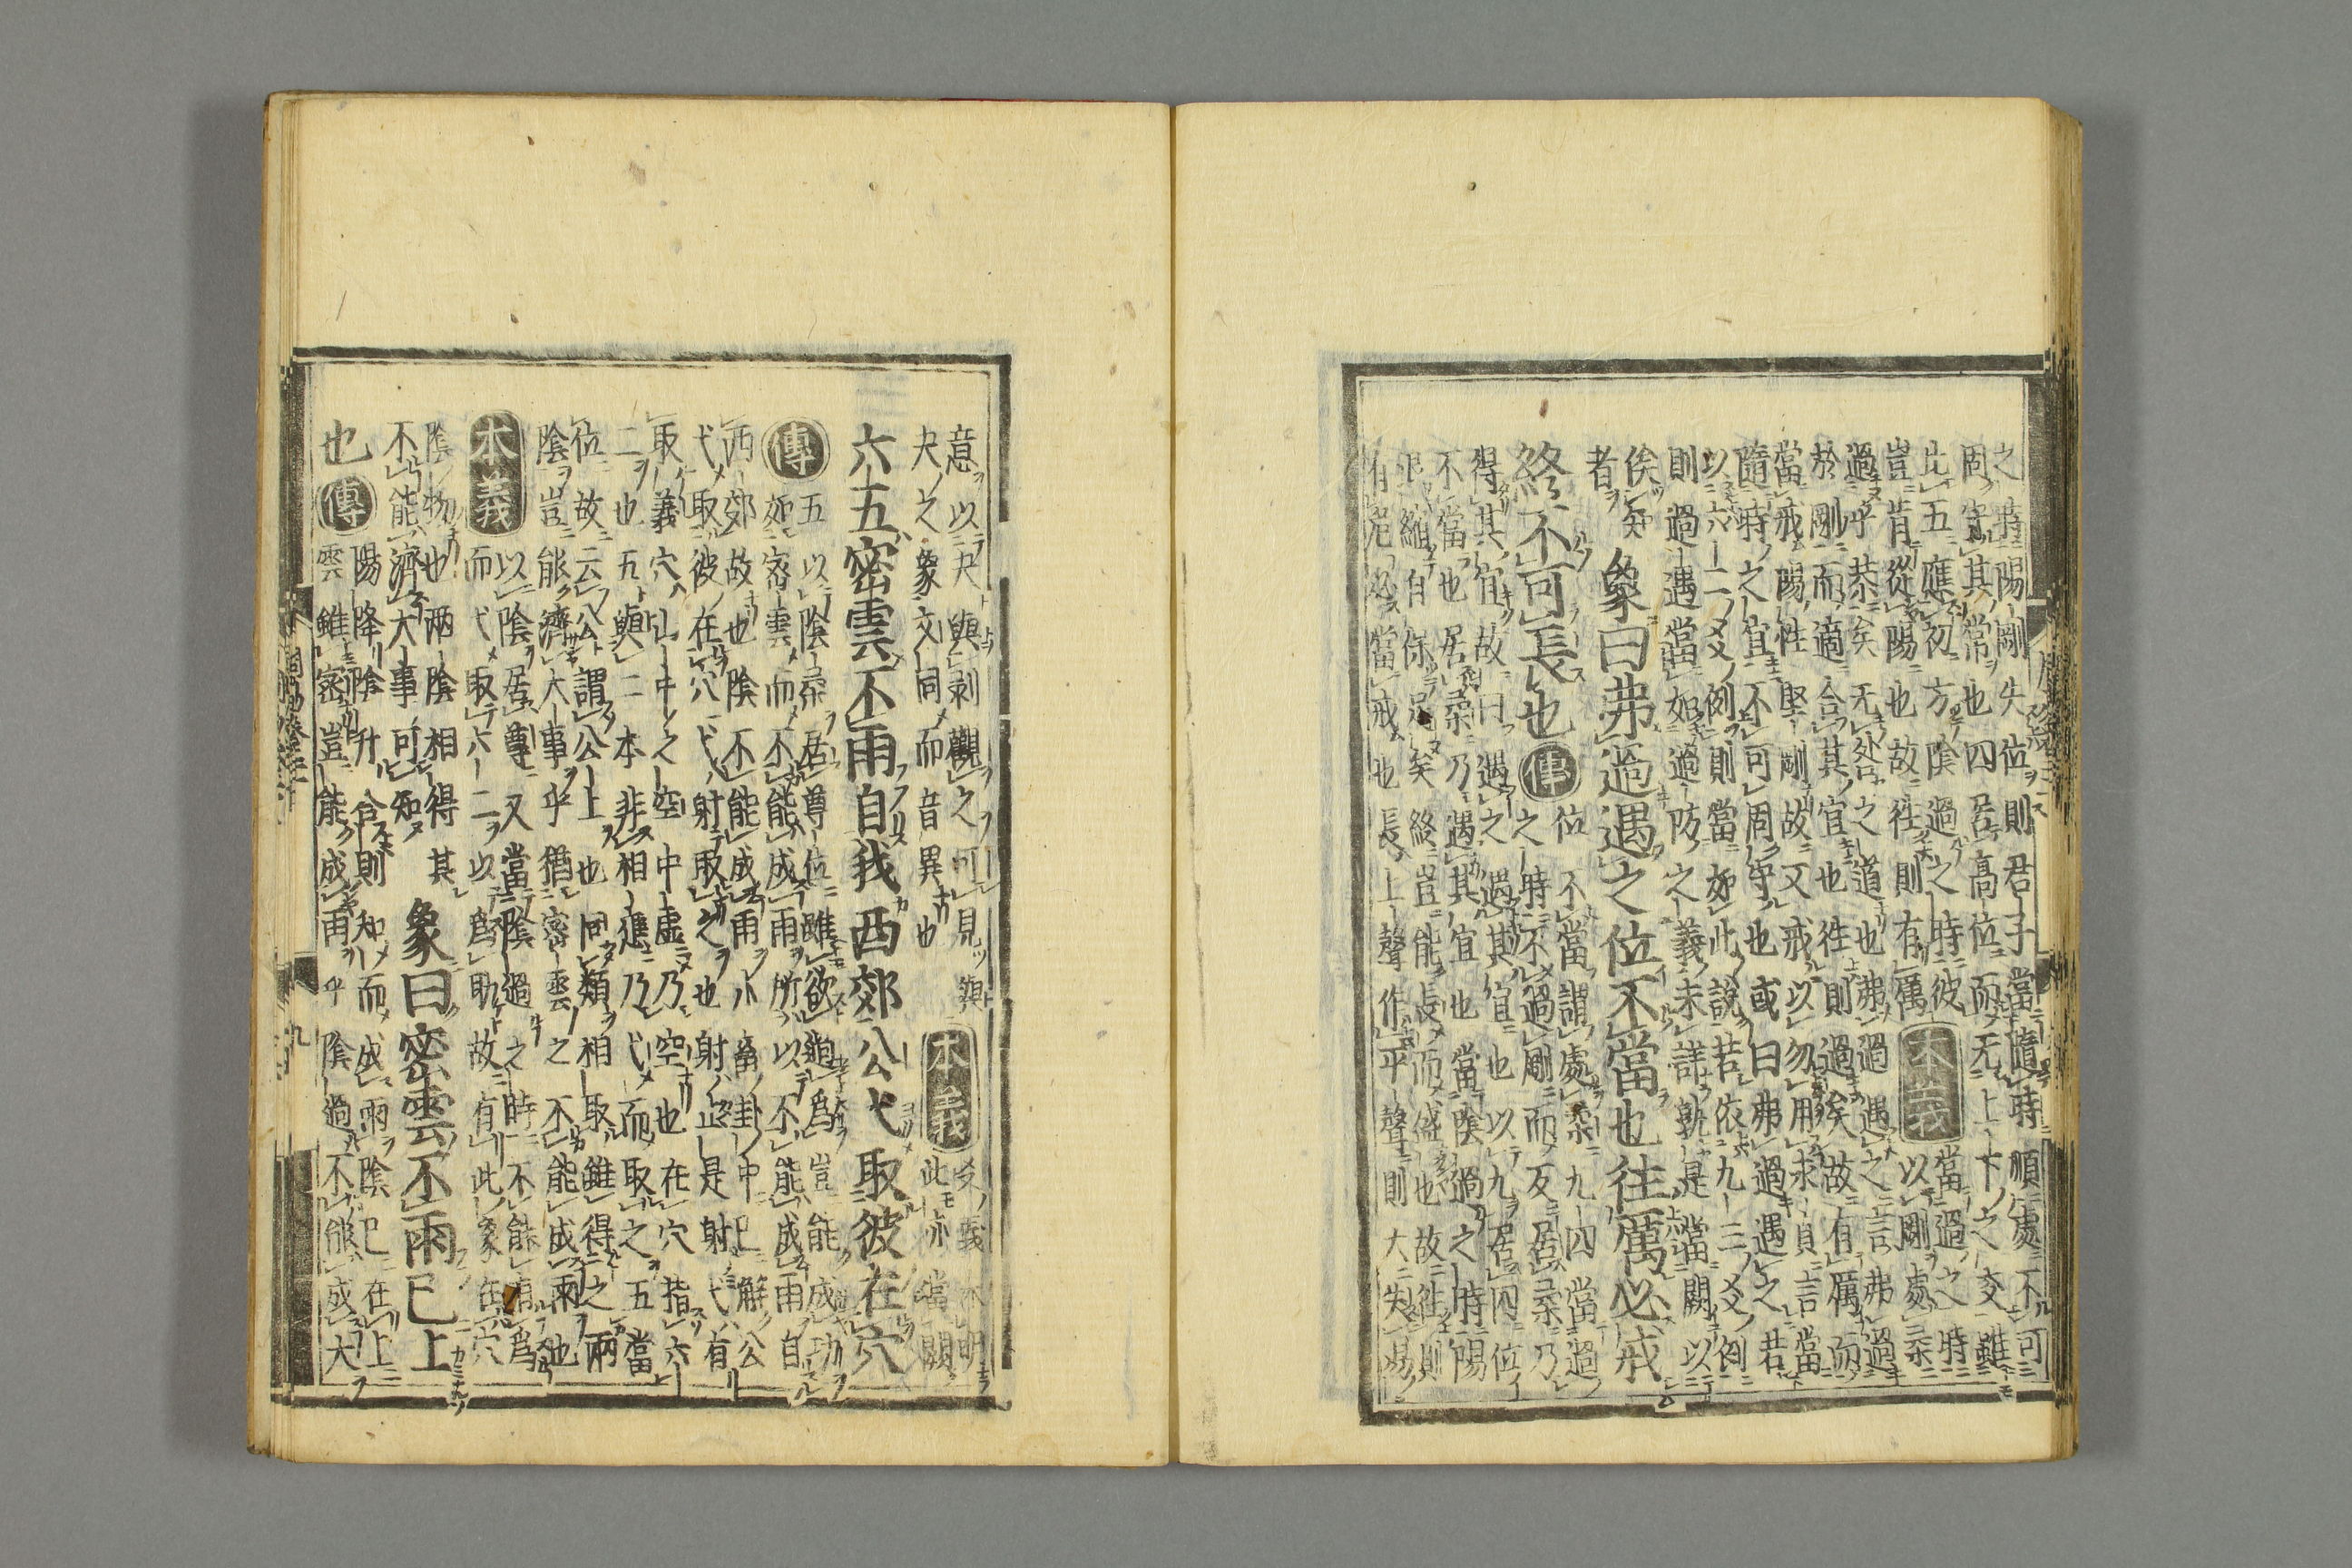 之時陽剛失位則君子當隨時順處不可
固守其常也四居高位而无上下之交雖
比五應初方陰過之時彼
豈肯從陽也故往則有厲
本義
當過之時
以剛處柔
過乎恭矣无咎之道也弗過遇之言弗過
於剛而適合其宜也往則過矣故有厲而
當戒陽性堅剛故又戒以勿用永貞言當
隨時之宜不可固守也或曰弗過遇之若
以六二爻例則當如此說若依九三爻例
則過遇當如過防之義未詳孰是當闕以
俟知
者
象曰弗過遇之位不當也往厲必戒
終不可長也
傳
位不當謂處柔九四當過
之時不過剛而反居柔乃
得其宜故曰遇之遇其宜也以九居四位
不當也居柔乃遇其宜也當陰過之時陽
退縮自保足矣終豈能長而盛也故往則
有危必當戒也長上聲作平聲則大失易
意以夬與剝觀之可見與
夬之象文同而音異也
本義
爻義未明
此亦當闕
六五密雲不雨自我西郊公弋取彼在穴
傳
五以陰柔居尊位雖欲過爲豈能成功
如密雲而不能成雨所以不能成雨自
西郊故也陰不能成雨小畜卦中已解公
弋取彼在穴弋射取之也射止是射弋有
取義穴山中之空中虛乃空也在穴指六
二也五與二本非相應乃弋而取之五當
位故云公謂公上也同類相取雖得之兩
陰豈能濟大事乎猶密雲之不能成雨也
本義
以陰居尊又當陰過之時不能有爲
而弋取六二以爲助故有此象在穴
陰物也兩陰相得其
不能濟大事可知
象曰密雲不雨已上
也
傳
陽降陰升合則和而成雨陰已在上
雲雖密豈能成雨乎陰過不能成大